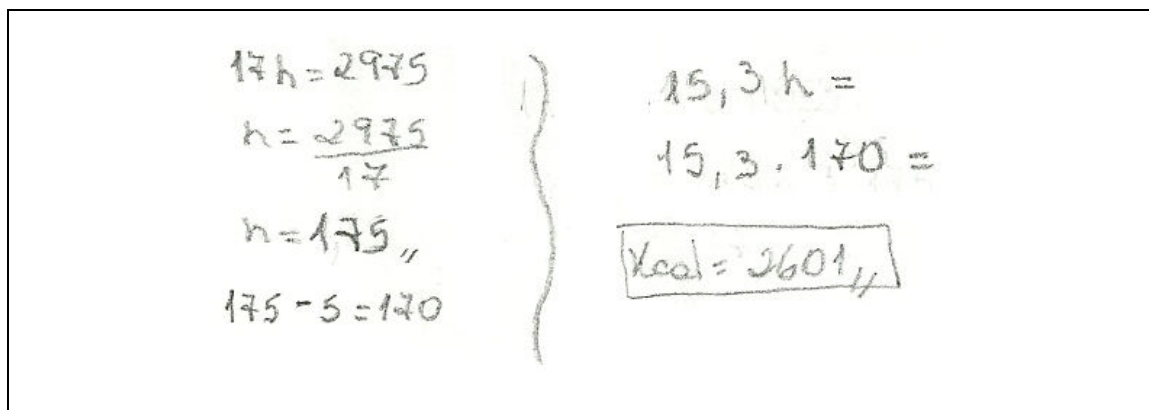 17h = 2975
h = 2975/17
h = 175,,
175 - 5 = 170
15,3 h =
15,3 . 170 =
Kcal = 2601,,